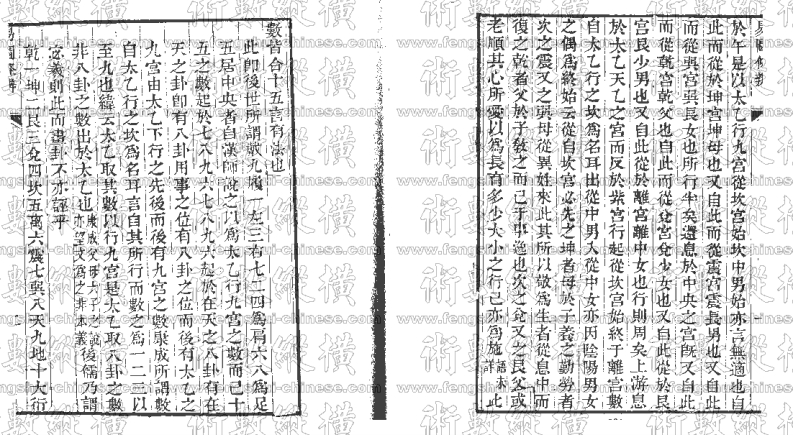 易圖條辨
於午是以太乙行九宮從坎宮始坎中男始亦言無適也自
此而從於坤宮坤母也又自此而從震宮震長男也又自此
而從巽宮巽長女也所行半矣還息於中央之宮既又自此
而從乾宮乾父也自此而從兌宮兌少女也又自此從於艮
宮艮少男也又自此從於離宮離中女也行則周矣上游息
於太乙天乙之宮而反於紫宮行起從坎宮始終于離宮數
自太乙行之坎為名耳出從中男入從中女亦因陰陽男女
之偶為終始云從自坎宮必先之坤者母於子養之勤勞者
次之震又之巽母從異姓來此其所以敬為生者從息中而
復之乾者父於子教之而已于事逸也次之兌又之艮父或
老順其心所愛以為長育多少大小之行已亦為施語未詳此
數皆合十五言有法也
此即後世所謂戴九履一左三右七二四為肩六八為足
五居中央者自漢師說之以為太乙行九宮之數而已十
五之數起於七八九六七八九六起於在天之八卦有在
天之卦即有八卦用事之位有八卦之位而後有太乙之
九宮由太乙下行之先後而後有九宮之數康成所謂數
自太乙行之坎為名耳言自其所行而數之為一二三以
至九也緯云太乙取其數以行九宮是太乙取八卦之數
非八卦之數出於太乙也康成父母六子之說亦望文為之非本義後儒乃謂
宓羲則此而畫卦不亦誣乎
乾一坤二艮三兌四坎五離六震七巽八天九地十大衍
易圖條辨
術數縱橫
www.fengshui-chinese.com